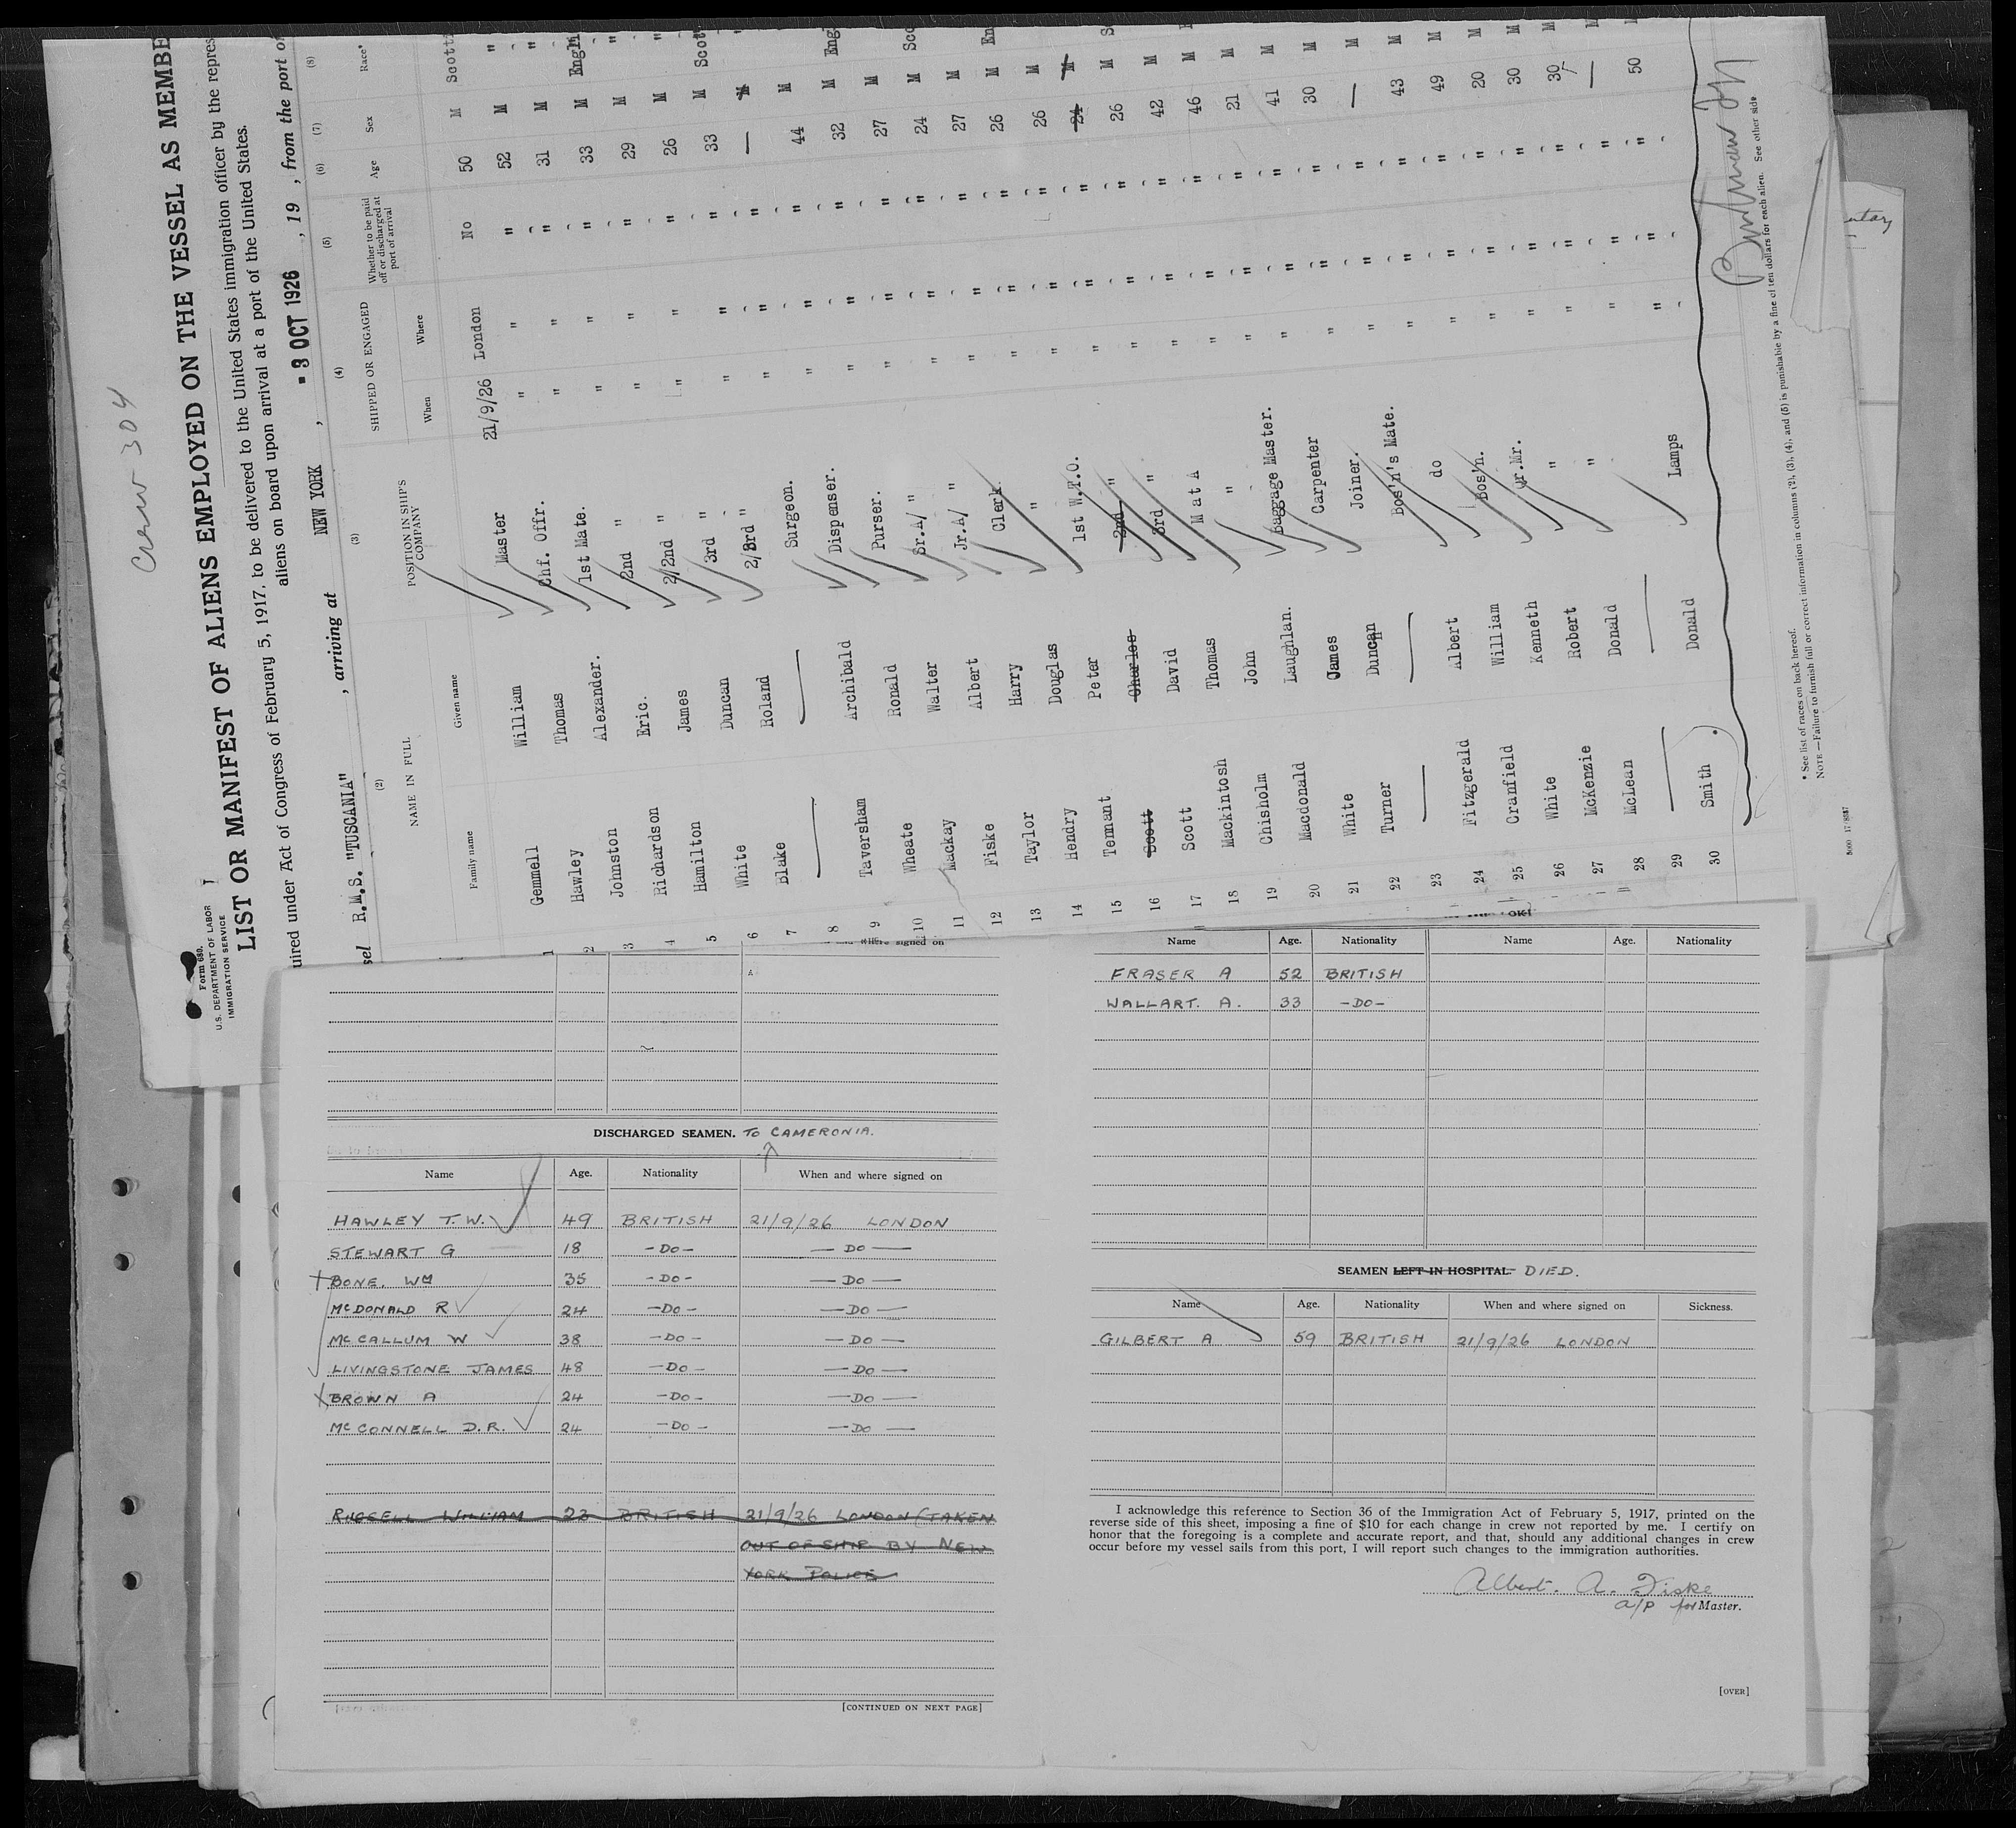 Crew 304
Form 680.
U.S. DEPARTMENT OF LABOR
IMMIGRATION SERVICE
LIST OR MANIFEST OF ALIENS EMPLOYED ON THE VESSEL AS MEMBE
uired under Act of Congress of February 5, 1917, to be delivered to the United States immigration officer by the repres
aliens on board upon arrival at a port of the United States.
sel R.M.S. "TUSCANIA" , arriving at NEW YORK , - 3 OCT 1926 , 19 , from the port of
(2) (3) (4) (5) (6) (7) (8)
NAME IN FULL POSITION IN SHIP'S COMPANY SHIPPED OR ENGAGED Whether to be paid off or discharged at port of arrival Age Sex Race*
Family name Given name When Where
1 Gemmell William Master 21/9/26 London No 50 M Scott
2 Hawley Thomas Chf. Offr. " " " 52 M "
3 Johnston Alexander. 1st Mate. " " " 31 M "
4 Richardson Eric. 2nd " " " " 33 M Engl
5 Hamilton James 2/2nd " " " " 29 M "
6 White Duncan 3rd " " " " 26 M "
7 Blake Roland 2/3rd " " " " 33 M Scot
8 — — Surgeon. " " " — M "
9 Taversham Archibald Dispenser. " " " 44 M
10 Wheate Ronald Purser. " " " 32 M Eng
11 Mackay Walter Sr.A/ " " " " 27 M
12 Fiske Albert Jr.A/ " " " " 24 M Sco
13 Taylor Harry Clerk " " " 27 M
14 Hendry Douglas " " " " 26 M En
15 Tennant Peter 1st W.T.O. " " " 26 M
16 Scott Charles 2nd " " " " 24 M
17 Scott David 3rd " " " " 26 M S
18 Mackintosh Thomas M at A " " " 42 M
19 Chisholm John " " " " 46 M
20 Macdonald Laughlan. Baggage Master. " " " 21 M
21 White James Carpenter " " " 41 M
22 Turner Duncan Joiner. " " " 30 M
23 — — Bos'n's Mate. " " " — M
24 Fitzgerald Albert do " " " 43 M
25 Cranfield William Bos'n. " " " 49 M
26 White Kenneth Qr.Mr. " " " 20 M
27 McKenzie Robert " " " " 30 M
28 McLean Donald " " " " 30 M
29 — — " " — M
30 Smith Donald Lamps " " " 50
* See list of races on back hereof.
NOTE.—Failure to furnish full or correct information in columns (2), (3), (4), and (5) is punishable by a fine of ten dollars for each alien. See other side
When and where signed on
DISCHARGED SEAMEN. TO CAMERONIA.
Name Age. Nationality When and where signed on
HAWLEY T.W. 49 BRITISH 21/9/26 LONDON
STEWART G 18 -DO- — DO —
BONE. WM 35 -DO- — DO —
McDONALD R 24 -DO- — DO —
McCALLUM W 38 -DO- — DO —
LIVINGSTONE JAMES 48 -DO- — DO —
BROWN A 24 -DO- — DO —
McCONNELL D.R. 24 -DO- — DO —
RUSSELL WILLIAM 23 BRITISH 21/9/26 LONDON (TAKEN
OUT OF SHIP BY NEW
YORK POLICE
[CONTINUED ON NEXT PAGE]
Name Age. Nationality Name Age. Nationality
FRASER A 52 BRITISH
WALLART. A. 33 -DO-
SEAMEN LEFT IN HOSPITAL DIED.
Name Age. Nationality When and where signed on Sickness.
GILBERT A 59 BRITISH 21/9/26 LONDON
I acknowledge this reference to Section 36 of the Immigration Act of February 5, 1917, printed on the
reverse side of this sheet, imposing a fine of $10 for each change in crew not reported by me. I certify on
honor that the foregoing is a complete and accurate report, and that, should any additional changes in crew
occur before my vessel sails from this port, I will report such changes to the immigration authorities.
Albert. A. Fiske
a/p for Master.
[OVER]